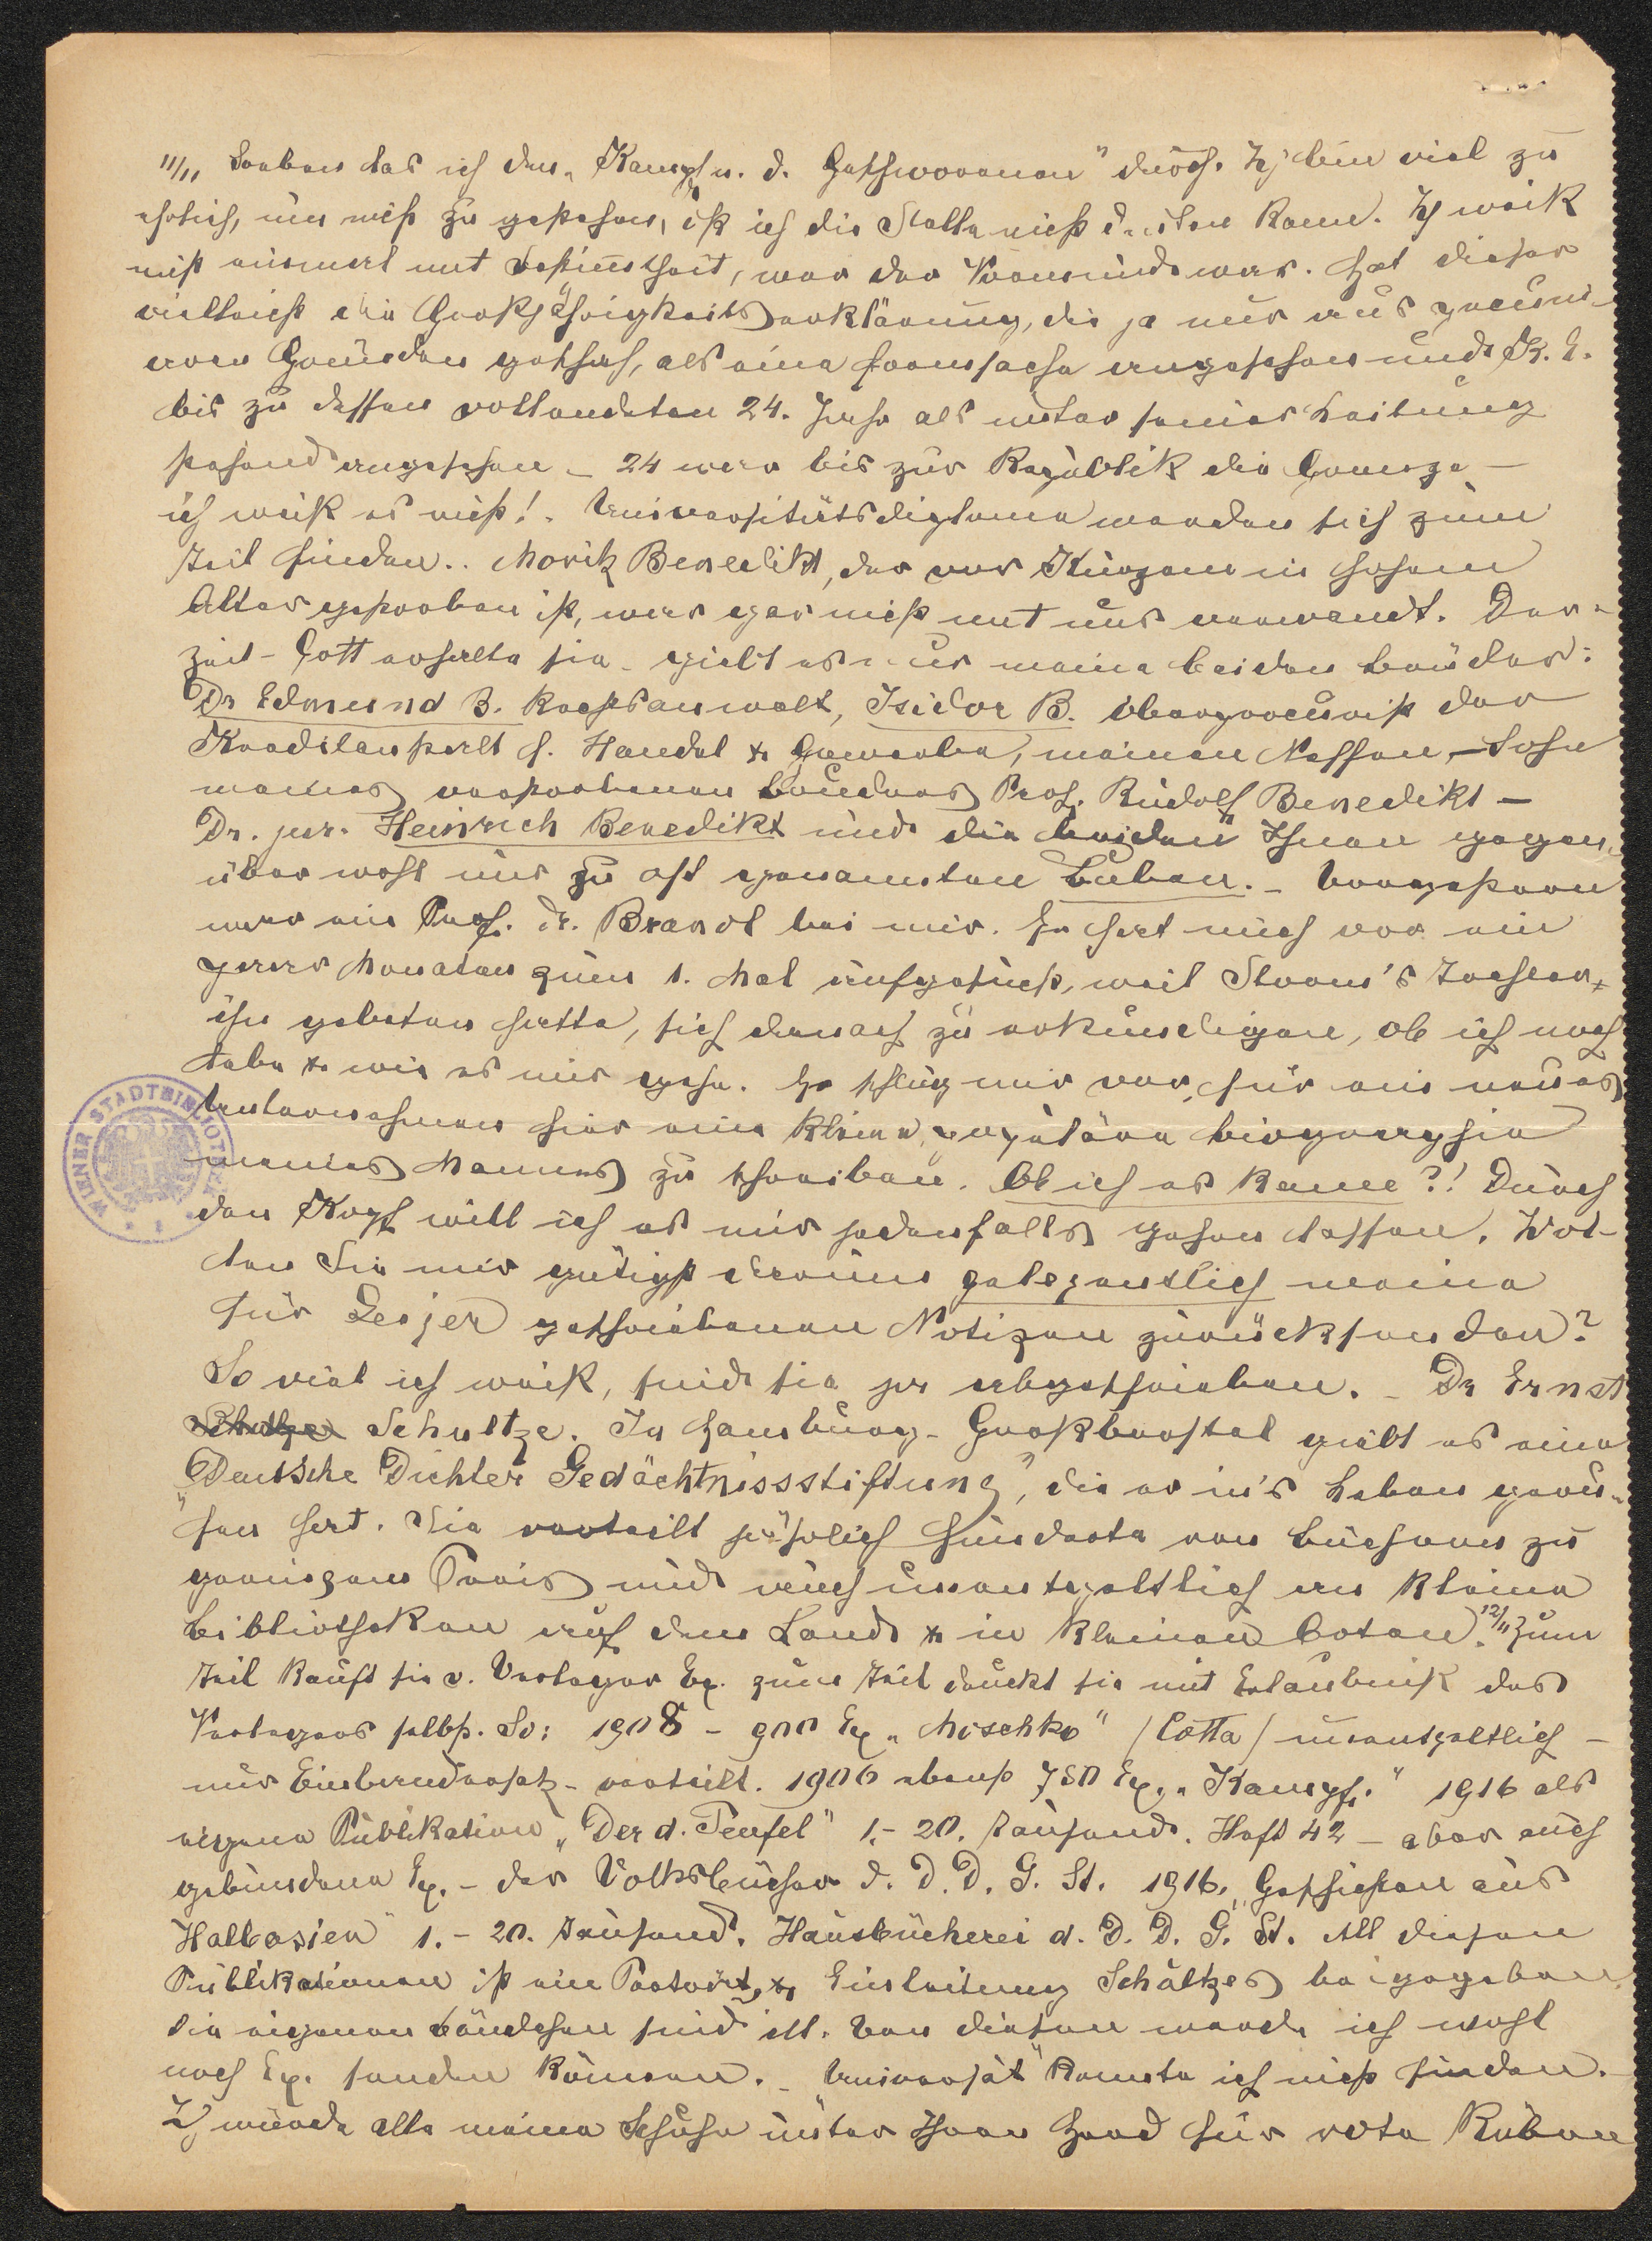 11/11 Soeben las ich den „Kampf u. d. Geschworenen" durch. Ich bin viel zu
ehrlich, um nicht zu gestehen, daß ich die Stelle nicht deuten kann. Ich weiß
nicht einmal mit Bestimmtheit, wer der Vormund war. Hat dieser
vielleicht die Großjährigkeitserklärung, die ja nur aus pecuni-
ären Gründen geschah, als eine Formsache angesehen und K. E.
bis zu dessen vollendeten 24. Jahr als unter seiner Leitung
stehend angesehen – 24 war bis zur Republik die Grenze –
ich weiß es nicht! – Universitätsdiplome werden sich zum
Teil finden.. Moritz Benedikt, der vor Kurzem in hohem
Alter gestorben ist, war gar nicht mit uns verwandt. Der-
zeit – Gott erhalte sie – giebt es nur meine beiden Brüder:
Dr Edmund B. Rechtsanwalt, Isidor B. Oberprocurist der
Kreditanstalt f. Handel & Gewerbe, meinen Neffen – Sohn
meines verstorbenen Bruders Prof. Rudolf Benedikt –
Dr. jur. Heinrich Benedikt und die beiden Ihnen gegen-
über wohl nur zu oft genannten Buben. – Vorgestern
war ein Prof. Dr. Brandl bei mir. Er hat mich vor ein
paar Monaten zum 1. Mal aufgesucht, weil Storm's Tochter
ihn gebeten hatte, sich danach zu erkundigen, ob ich noch
lebe & wie es mir gehe. Er schlug mir vor, für ein neues
Unternehmen hier eine kleine, populäre Biographie
meines Mannes zu schreiben. Ob ich es kann?! Durch
den Kopf will ich es mir jedenfalls gehen lassen. Wol-
len Sie mir gütigst darum gelegentlich meine
für Leijer geschriebenen Notizen zurücksenden?
So viel ich weiß, sind sie ja abgeschrieben. – Dr Ernst
Schultze. In Hamburg-Großborstel giebt es eine
„Deutsche Dichter Gedächtnissstiftung", die er in's Leben geru-
fen hat. Sie verteilt jährlich hunderte von Büchern zu
geringem Preis und auch unentgeltlich an kleine
Bibliotheken auf dem Land & in kleinen Orten. 12/11 Zum
Teil kauft sie v. Verleger Ex. zum Teil druckt sie mit Erlaubniß des
Verlegers selbst. So: 1908 – 900 Ex „Moschko" /Cotta/ unentgeltlich –
nur Einbandersatz – verteilt. 1906 ebenso 750 Ex. „Kampf." 1916 als
eigene Publikation „Der d. Teufel" 1.–20. Tausend. Heft 42 – aber auch
gebundene Ex. – der Volksbücher d. D. D. G. St. 1916. „Geschichten aus
Halbasien" 1.–20. Tausend. Hausbücherei d. D. D. G. St. All diesen
Publikationen ist ein Porträt & Einleitung Schultzes beigegeben
die eigenen Bändchen sind ill. Von diesen werde ich wohl
noch Ex. senden können. – konnte ich nicht finden. –
Ich würde alle meine Schuhe unter Ihren Herd für rote Rüben
WIENER STADTBIBLIOTHEK